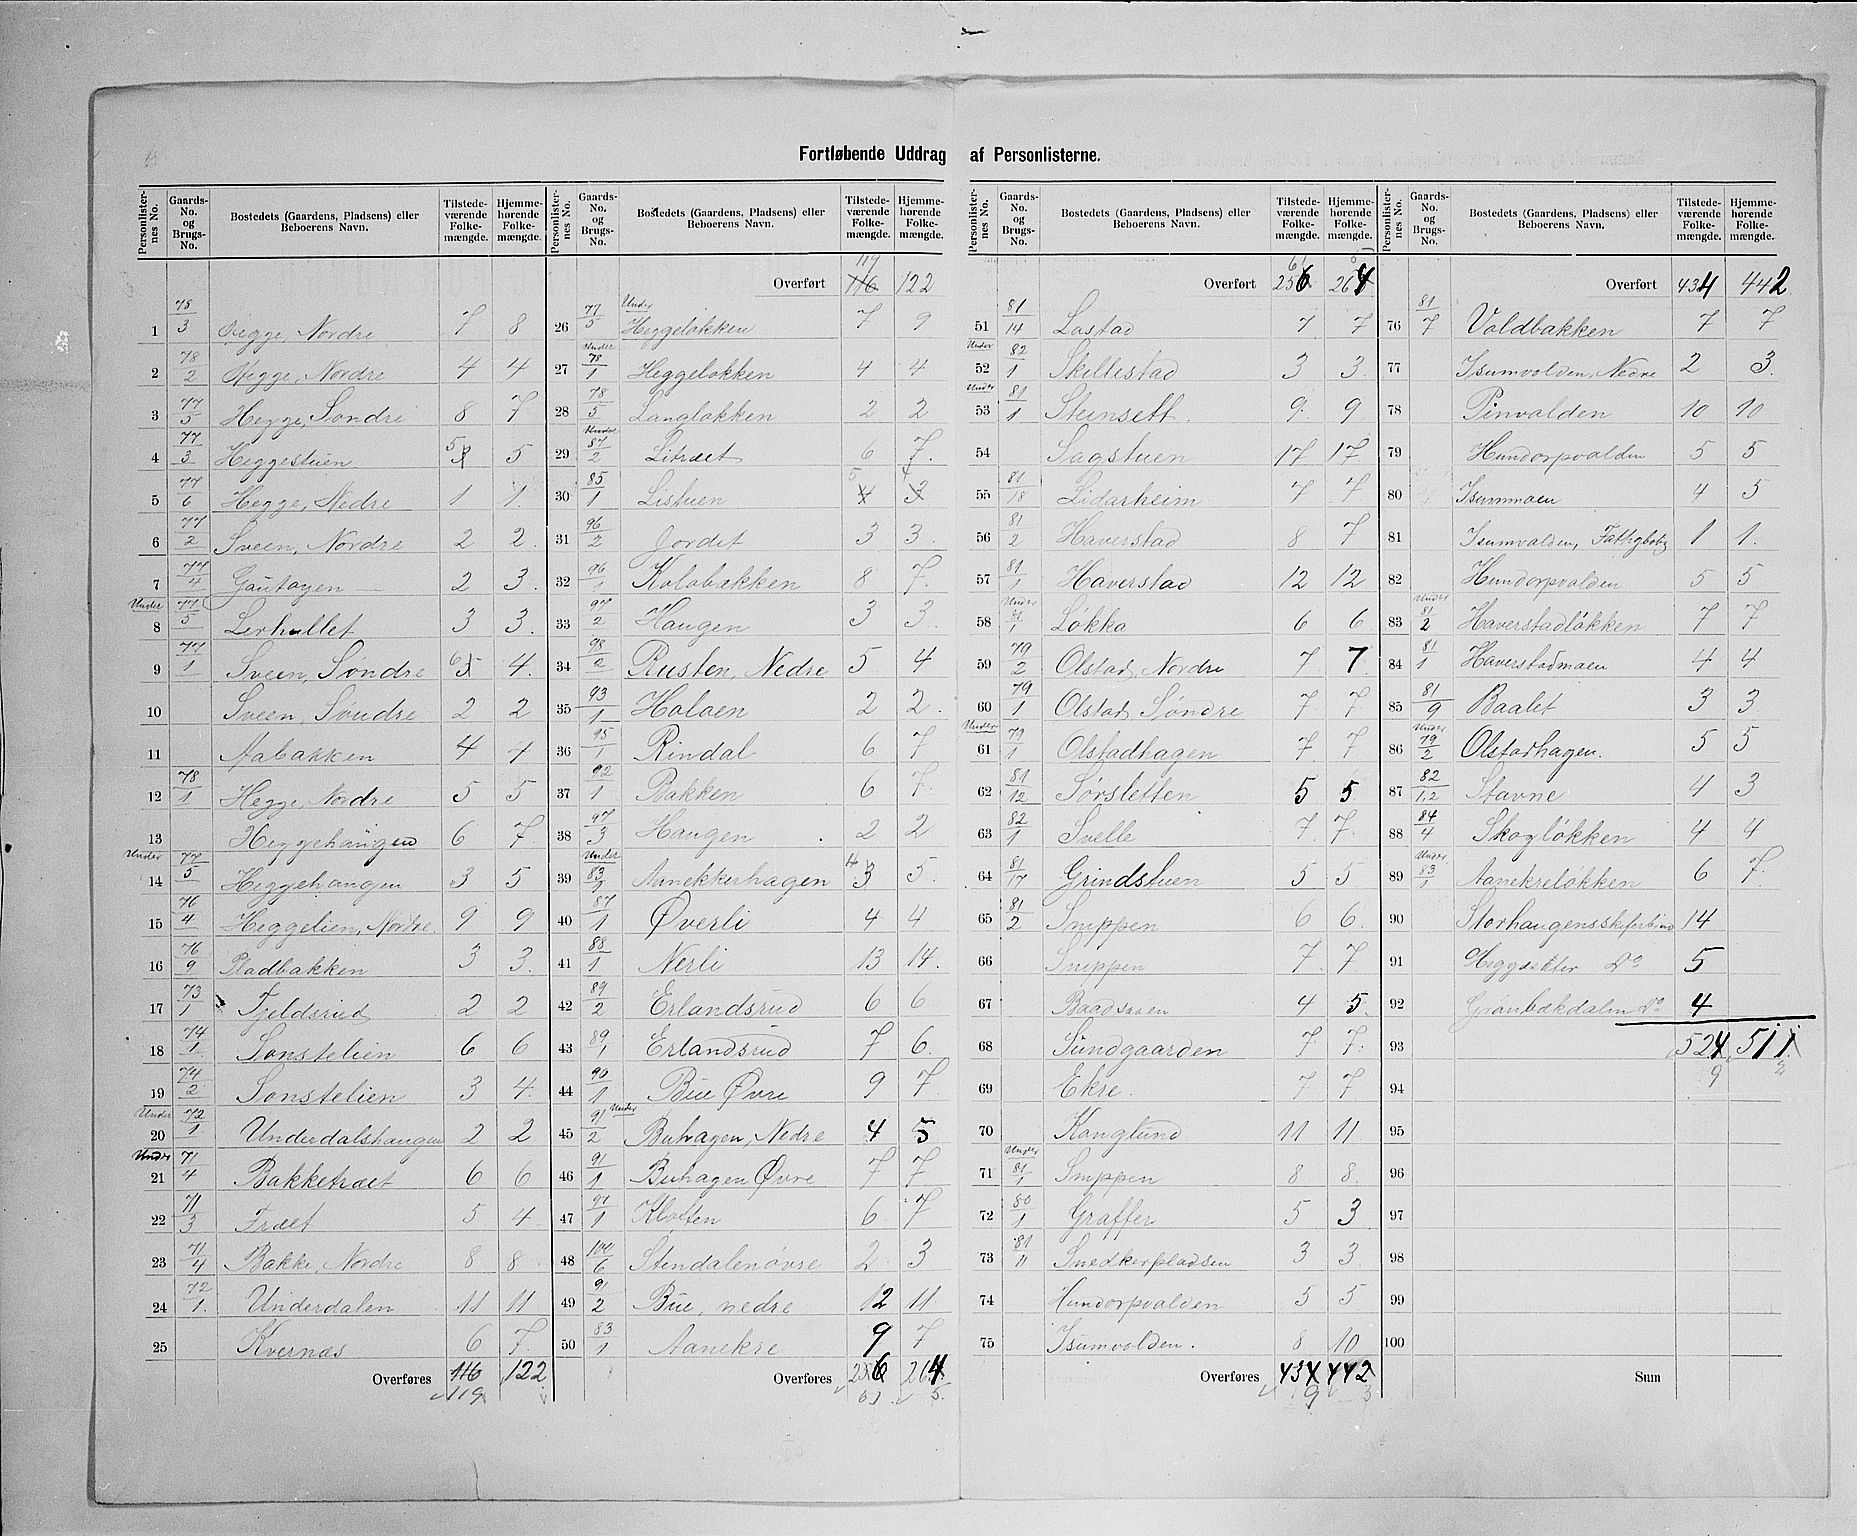 Fortløbende Uddrag af Personlisterne.
Personlisternes No. | Gaards-No. og Brugs-No. | Bostedets (Gaardens, Pladsens) eller Beboerens Navn. | Tilstedeværende Folkemængde. | Hjemmehørende Folkemængde.
1 78/3 Hegge, Nordre 7 8
2 78/2 Hegge, Nordre 4 4
3 77/5 Hegge, Søndre 8 7
4 77/3 Heggestuen 5 5
5 77/6 Hegge, Nedre 1 1
6 77/2 Sveen, Nordre 2 2
7 77/4 Gautagen 2 3
8 Under 77/5 Lerhullet 3 3
9 77/1 Sveen, Søndre 6 4
10 Sveen, Søndre 2 2
11 Aabakken 4 4
12 78/1 Hegge, Nordre 5 5
13 Heggehaugen 6 7
14 Under 77/5 Heggehaugen 3 5
15 76/4 Heggelien, Nordre 9 9
16 76/9 Pladbakken 3 3
17 73/1 Fjeldsrud 2 2
18 74/1 Sonstelien 6 6
19 74/2 Sonstelien 3 4
20 Under 72/1 Underdalshaugen 2 2
21 Under 71/4 Bakketræet 6 6
22 71/3 Træet 5 4
23 71/4 Bakke, Nordre 8 8
24 72/1 Underdalen 11 11
25 Kvernæs 6 7
Overføres 116 122
119
Personlisternes No. | Gaards-No. og Brugs-No. | Bostedets (Gaardens, Pladsens) eller Beboerens Navn. | Tilstedeværende Folkemængde. | Hjemmehørende Folkemængde.
119
Overført 116 122
26 77/5 Under Heggeløkken 7 9
27 Under 78/1 Heggeløkken 4 4
28 78/5 Langløkken 2 2
29 Under 87/2 Litræet 6 7
30 85/1 Listuen 5
31 96/2 Jordet 3 3
32 96/1 Kolobakken 8 7
33 97/2 Haugen 3 3
34 98/2 Rusten, Nedre 5 4
35 93/1 Holoen 2 2
36 95/1 Rindal 6 7
37 92/1 Bakken 6 7
38 97/3 Haugen 2 2
39 Under 83/1 Aanekkerhagen 4 5
40 87/1 Øverli 4 4
41 88/1 Nerli 13 14
42 89/2 Erlandsrud 6 6
43 89/1 Erlandsrud 7 6
44 90/1 Bue Øvre 9 7
45 91/2 Under Buhagen, Nedre 4 5
46 91/1 Buhagen Øvre 7 7
47 97/1 Kloften 6 7
48 100/6 Stendalen øvre 2 3
49 91/2 Bue, nedre 12 11
50 83/1 Aanekre 9 7
Overføres 256 264
61 5
Personlisternes No. | Gaards-No. og Brugs-No. | Bostedets (Gaardens, Pladsens) eller Beboerens Navn. | Tilstedeværende Folkemængde. | Hjemmehørende Folkemængde.
61 5
Overført 256 264
51 81/14 Lostad 7 7
52 Under 82/1 Skellestad 3 3
53 Under 81/1 Steinsett 9 9
54 Sagstuen 17 17
55 81/18 Lidarheim 7 7
56 81/2 Haverstad 8 7
57 81/1 Haverstad 12 12
58 Under 81/1 Løkka 6 6
59 79/2 Olstad, Nordre 7 7
60 79/1 Olstad, Søndre 7 7
61 Under 79/1 Olstadhagen 7 7
62 81/12 Sørsletten 5 5
63 82/1 Svelle 7 7
64 81/17 Grindstuen 5 5
65 81/2 Snippen 6 6
66 Snippen 7 7
67 Baadsaaen 4 5
68 Sundgaarden 7 7
69 Ekre 7 7
70 Kanglund 11 11
71 Under 81/1 Snippen 8 8
72 80/1 Graffer 5 3
73 81/11 Snedkerpladsen 3 3
74 Hundorpvolden 5 5
75 Isumvolden. 8 10
Overføres 434 442
9 3
Personlisternes No. | Gaards-No. og Brugs-No. | Bostedets (Gaardens, Pladsens) eller Beboerens Navn. | Tilstedeværende Folkemængde. | Hjemmehørende Folkemængde.
Overført 434 442
76 81/7 Voldbakken 7 7
77 Isumvolden, Nedre 2 3
78 Pinvolden 10 10
79 Hundorpvolden 5 5
80 Isummoen 4 5
81 Isumvolden, Fattigbolig 1 1
82 Hundorpvolden 5 5
83 Under 81/2 Haverstadløkken 7 7
84 81/1 Haverstadmoen 4 4
85 81/9 Baalet 3 3
86 Under 79/2 Olstadhagen. 5 5
87 82/1,2 Stavne 4 3
88 84/4 Skogløkken 4 4
89 Under 83/1 Aanekreløkken 6 7
90 Storhaugensskiferbrud 14
91 Do 5
92 Do 4
93 524 511
9
94
95
96
97
98
99
100
Sum